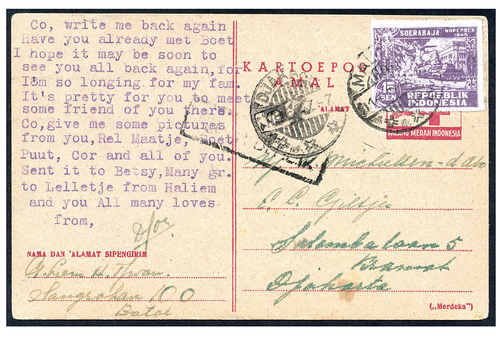 Co, write me back again
Have you already met Boet
I hope it may be soon to
see you all back again, for
I8m so longing for my fam.
It's pretty for you to meet
some friend of you there.
Co, give me some pictures
from you, Rel Maatje,
Puut, Cor and all of you.
Sent it to Betsy, Many gr.
to Lelletje from Haliem
and you All many loves
from,
NAMA DAN 'ALAMAT SIPENGIRIM
Sangrahan 100
Batoe
KARTOEPOS
AMAL
'ALAMAT
SOERABAJA
NOPEMBER
1945
15
SEN
REPOEBLIK
INDONESIA
PALANG MERAH INDONESIA
Salemba laan 5
Kramat
Djakarta
(„Merdeka")